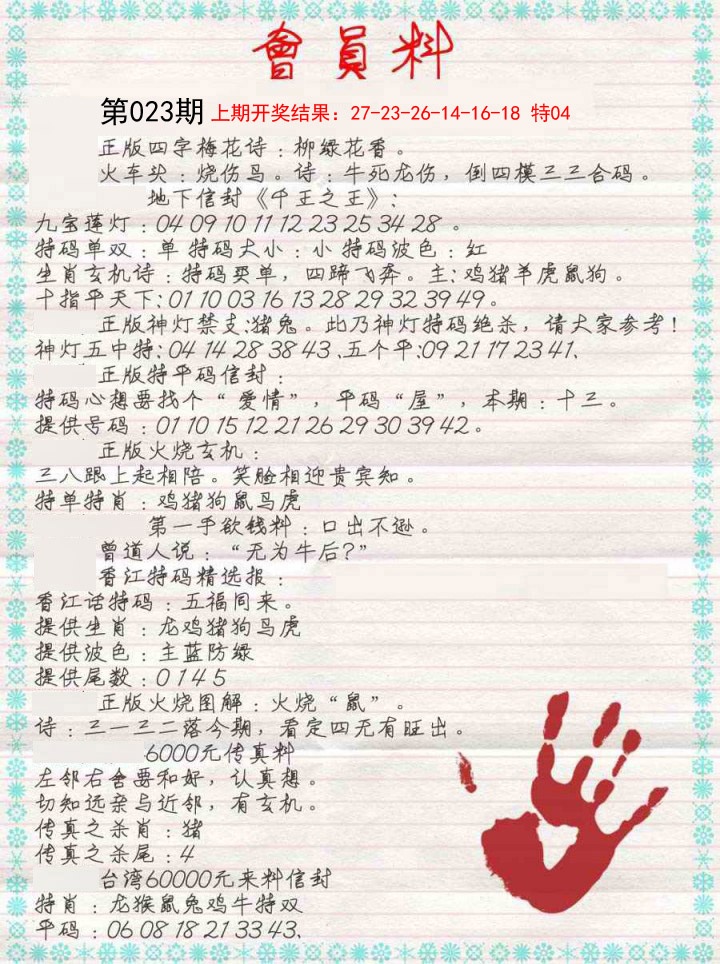 會員料
第023期 上期开奖结果：27-23-26-14-16-18 特04
正版四字梅花诗：柳绿花香。
火车头：烧伤鸟。诗：牛死龙伤，倒四模三三合码。
地下信封《千王之王》：
九宝莲灯：04 09 10 11 12 23 25 34 28 。
特码单双：单 特码大小：小 特码波色：红
生肖玄机诗：特码买单，四蹄飞奔。主：鸡猪羊虎鼠狗。
十指平天下：01 10 03 16 13 28 29 32 39 49。
正版神灯禁支：猪兔。此乃神灯特码绝杀，请大家参考！
神灯五中特：04 14 28 38 43、五个平：09 21 17 23 41、
正版特平码信封：
特码心想要找个“爱情”，平码“屋”，本期：十三。
提供号码：01 10 15 12 21 26 29 30 39 42。
正版火烧玄机：
三八跟上起相陪。笑脸相迎贵宾知。
特单特肖：鸡猪狗鼠鸟虎
第一手欲钱料：口出不逊。
曾道人说：“无为牛后?”
香江特码精选报：
香江话特码：五福同来。
提供生肖：龙鸡猪狗鸟虎
提供波色：主蓝防绿
提供尾数：0 1 4 5
正版火烧图解：火烧“鼠”。
诗：三一三二落今期，看定四无有旺出。
6000元传真料
左邻右舍要和好，认真想。
切知远亲与近邻，有玄机。
传真之杀肖：猪
传真之杀尾：4
台湾60000元来料信封
特肖：龙猴鼠兔鸡牛特双
平码：06 08 18 21 33 43、